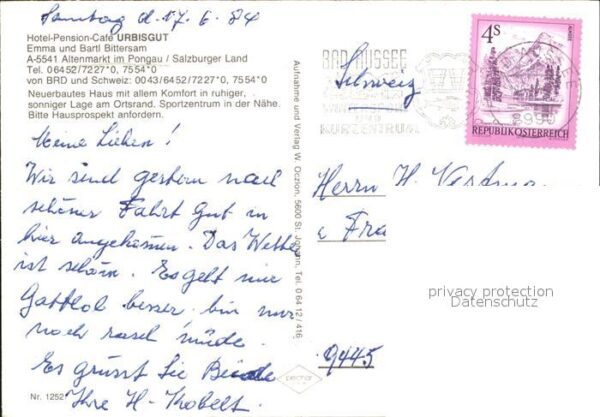 Samstag d. 17. 6. 84
Hotel-Pension-Café URBISGUT
Emma und Bartl Bittersam
A-5541 Altenmarkt im Pongau / Salzburger Land
Tel. 06452/7227*0, 7554*0
von BRD und Schweiz: 0043/6452/7227*0, 7554*0
Neuerbautes Haus mit allem Komfort in ruhiger,
sonniger Lage am Ortsrand. Sportzentrum in der Nähe.
Bitte Hausprospekt anfordern.
Meine Lieben!
Wir sind gestern nach
schöner Fahrt gut in
hier angekommen. Das Wetter
ist schön. Es geht mir
Gottlob besser, bin nur
noch rasch müde.
Es grüsst Sie Beide
Ihre H. Kobelt
Nr. 1252
Aufnahme und Verlag W. Oczlon, 5600 St. Johann, Tel. 0 64 12 / 416
BAD AUSSEE
KURZENTRUM
8990
4S
REPUBLIK ÖSTERREICH
Schweiz
Herrn H.
Fra
privacy protection
Datenschutz
9445